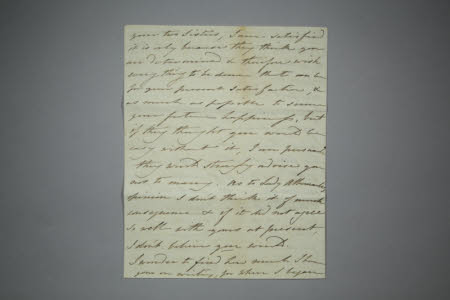 your two Sisters, I am satisfied
it is only because they think you
are determined & therefore wish
every thing to be done that can be
for your present satisfaction, &
as much as possible to secure
your future happiness, but
if they thought you would be
easy without it, I am persuaded
they would strongly advise you
not to marry. As to Lady
opinion I don't think it of much
consequence & if it did not agree
so well with yours at present
I don't believe you would.
I wonder to find how much I have
gone on writing, for when I began